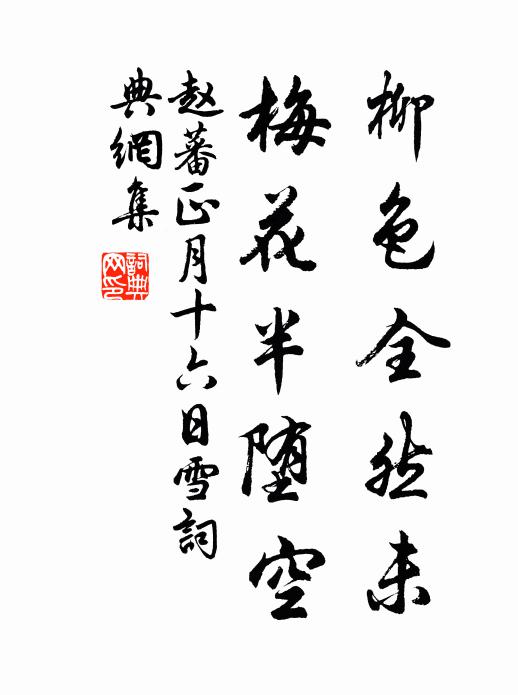 柳色全然未
梅花半堕空
赵蕃正月十六日雪詞
典網集
詞典网印